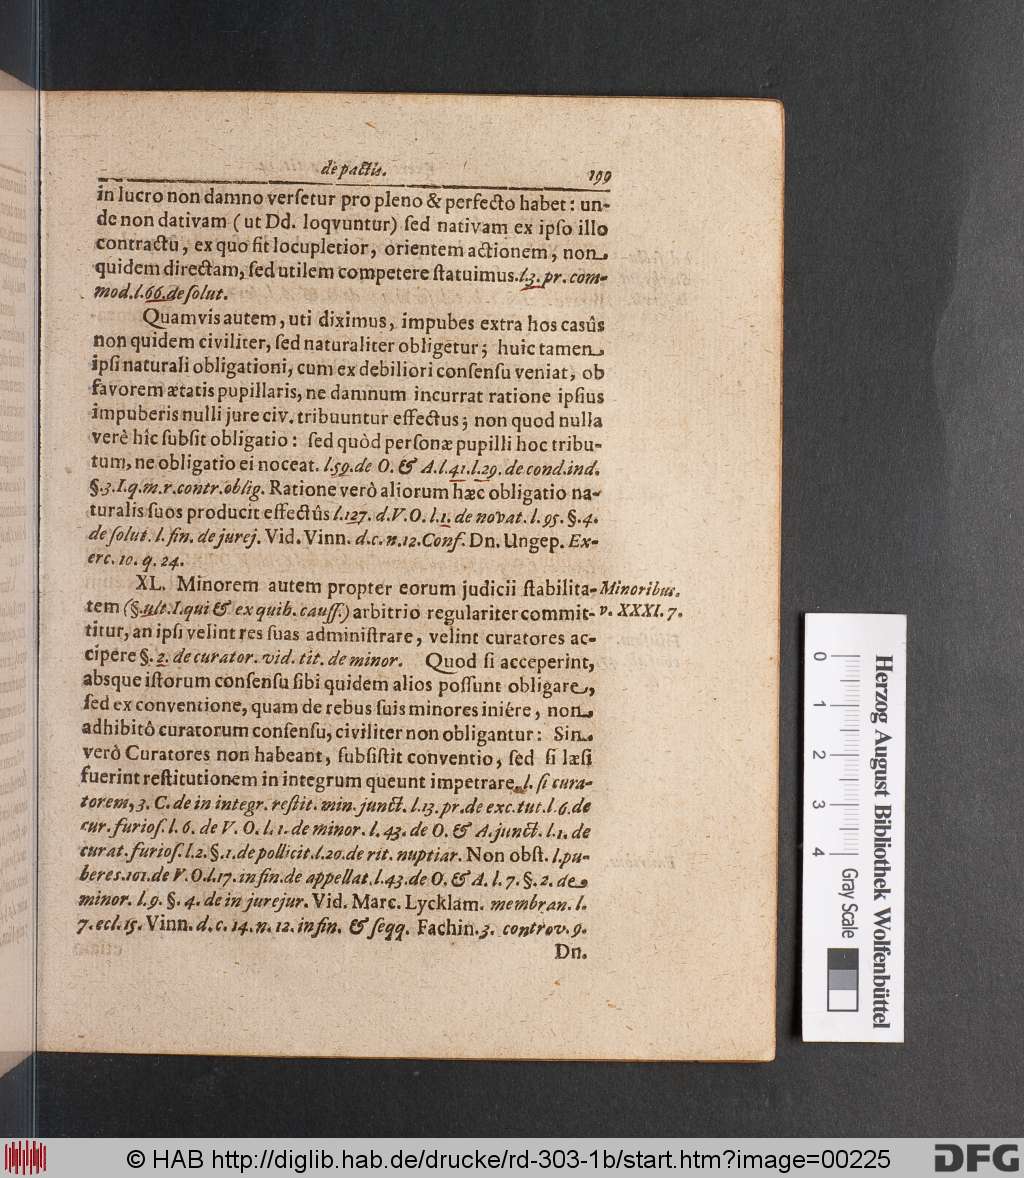 de pactis. 199
in lucro non damno versetur pro pleno & perfecto habet: un-
de non dativam (ut Dd. loqvuntur) sed nativam ex ipso illo
contractu, ex quo fit locupletior, orientem actionem, non
quidem directam, sed utilem competere statuimus. l.3. pr. com-
mod. l.66. de solut.
Quamvis autem, uti diximus, impubes extra hos casûs
non quidem civiliter, sed naturaliter obligetur; huic tamen
ipsi naturali obligationi, cum ex debiliori consensu veniat, ob
favorem ætatis pupillaris, ne damnum incurrat ratione ipsius
impuberis nulli jure civ. tribuuntur effectus; non quod nulla
verè hîc subsit obligatio: sed quòd personæ pupilli hoc tribu-
tum, ne obligatio ei noceat. l.59. de O. & A. l.41. l.29. de cond. ind.
§.3. I. q. m. r. contr. oblig. Ratione verò aliorum hæc obligatio na-
turalis suos producit effectûs l.127. d. V. O. l.1. de novat. l.95. §.4.
de solut. l. fin. de jurej. Vid. Vinn. d. c. n. 12. Conf. Dn. Ungep. Ex-
erc. 10. q. 24.
XL. Minorem autem propter eorum judicii stabilita- Minoribus.
tem (§. ult. I. qui & ex quib. causs.) arbitrio regulariter commit- v. XXXI. 7.
titur, an ipsi velint res suas administrare, velint curatores ac-
cipere §. 2. de curator. vid. tit. de minor. Quod si acceperint,
absque istorum consensu sibi quidem alios possunt obligare,
sed ex conventione, quam de rebus suis minores iniére, non
adhibitô curatorum consensu, civiliter non obligantur: Sin
verò Curatores non habeant, subsistit conventio, sed si læsi
fuerint restitutionem in integrum queunt impetrare. l. si cura-
torem, 3. C. de in integr. restit. min. junct. l.13. pr. de exc. tut. l.6. de
cur. furios. l. 6. de V. O. l. 1. de minor. l. 43. de O. & A. junct. l.1. de
curat. furios. l.2. §.1. de pollicit. l.20. de rit. nuptiar. Non obst. l. pu-
beres. 101. de V. O. l.17. in fin. de appellat. l.43. de O. & A. l. 7. §. 2. de
minor. l. 9. §. 4. de in jurejur. Vid. Marc. Lycklam. membran. l.
7. ecl. 15. Vinn. d. c. 14. n. 12. in fin. & seqq. Fachin. 3. controv. 9.
Dn.
0 1 2 3 4
Gray Scale
Herzog August Bibliothek Wolfenbüttel
© HAB http://diglib.hab.de/drucke/rd-303-1b/start.htm?image=00225
DFG